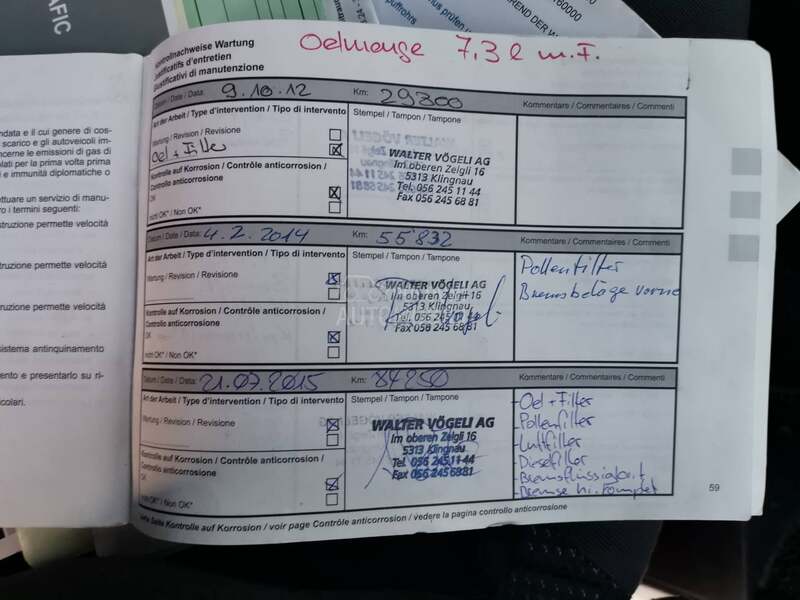 AFIC
60000
prüfen
Kontrollnachweise Wartung
Justificatifs d'entretien
Giustificativi di manutenzione
Oelmenge 7,3 l m.F.
Datum / Date / Data: 9.10.12 Km: 29300 Kommentare / Commentaires / Commenti
Art der Arbeit / Type d'intervention / Tipo di intervento Stempel / Tampon / Tampone
Wartung / Revision / Revisione
Oel + Filter
WALTER VÖGELI AG
Im oberen Zelgli 16
5313 Klingnau
Tel. 056 245 11 44
Fax 056 245 68 81
Kontrolle auf Korrosion / Contrôle anticorrosion /
Controllo anticorrosione
OK
nicht OK* / Non OK*
Datum / Date / Data: 4.2.2014 Km: 55832 Kommentare / Commentaires / Commenti
Art der Arbeit / Type d'intervention / Tipo di intervento Stempel / Tampon / Tampone
Wartung / Revision / Revisione
WALTER VÖGELI AG
Im oberen Zelgli 16
5313 Klingnau
Tel. 056 245 11 44
Fax 056 245 68 81
Pollenfilter
Bremsbeläge vorne
Kontrolle auf Korrosion / Contrôle anticorrosion /
Controllo anticorrosione
OK
nicht OK* / Non OK*
Datum / Date / Data: 21.07.2015 Km: 84250 Kommentare / Commentaires / Commenti
Art der Arbeit / Type d'intervention / Tipo di intervento Stempel / Tampon / Tampone
Wartung / Revision / Revisione
WALTER VÖGELI AG
Im oberen Zelgli 16
5313 Klingnau
Tel. 056 245 11 44
Fax 056 245 68 81
- Oel + Filter
- Pollenfilter
- Luftfilter
- Dieselfilter
- Bremsflüssigkeit
- Bremse hi. komplet
Kontrolle auf Korrosion / Contrôle anticorrosion /
Controllo anticorrosione
OK
nicht OK* / Non OK*
*siehe Seite Kontrolle auf Korrosion / voir page Contrôle anticorrosion / vedere la pagina controllo anticorrosione
59
ndata e il cui genere di cos-
scarico e gli autoveicoli im-
ncerne le emissioni di gas di
olati per la prima volta prima
i e immunità diplomatiche o
ettuare un servizio di manu-
ro i termini seguenti:
struzione permette velocità
struzione permette velocità
struzione permette velocità
sistema antinquinamento
ento e presentarlo su ri-
colari.